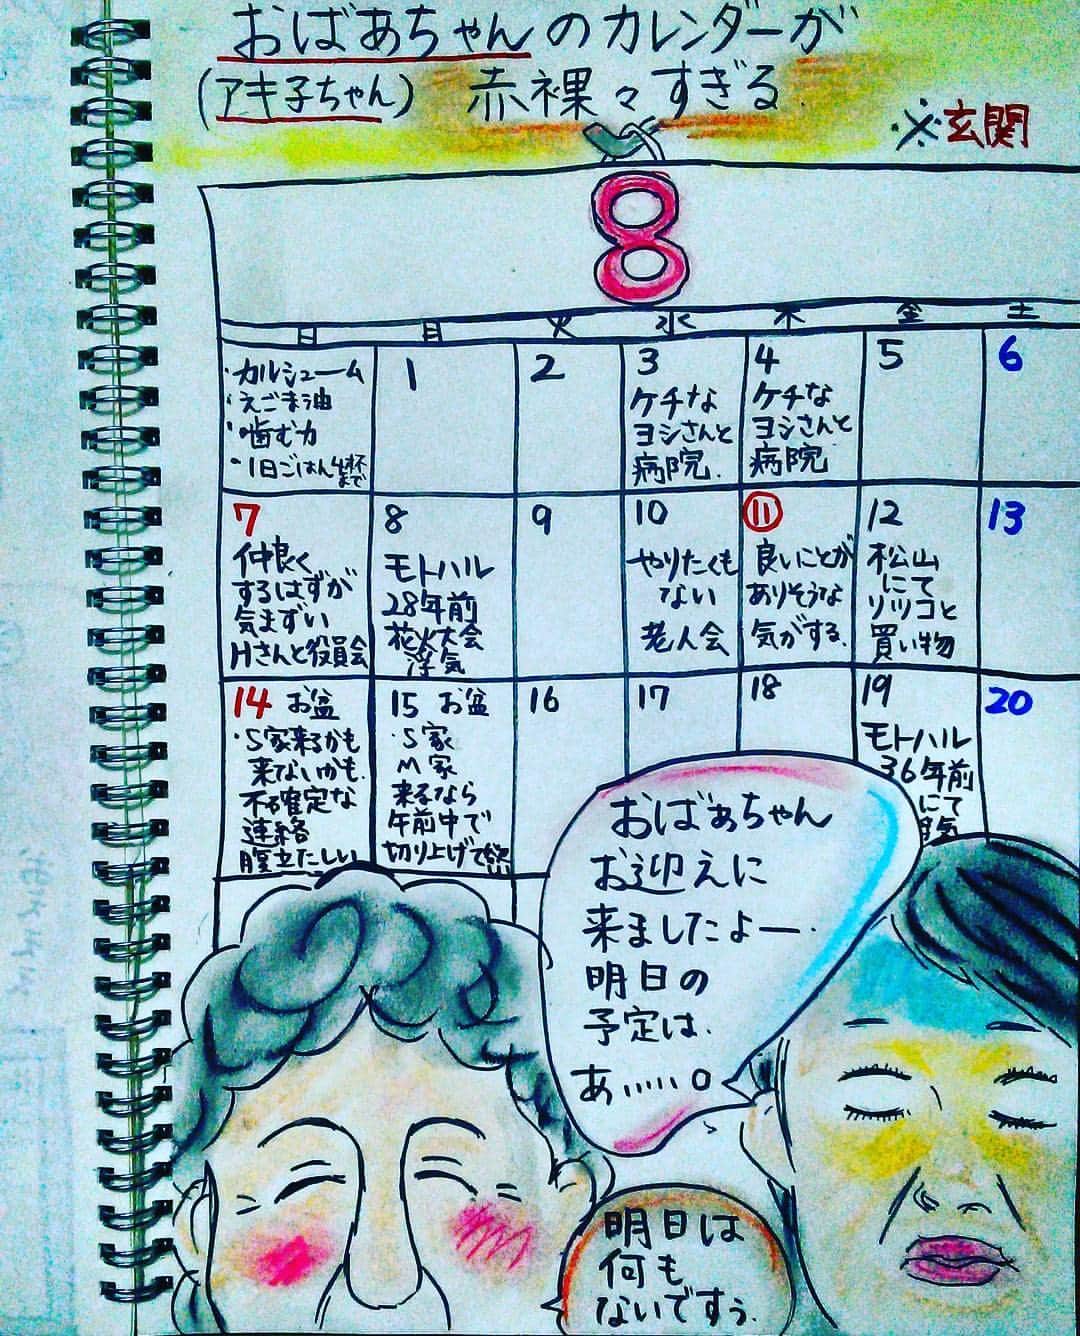 おばあちゃんのカレンダーが
(アキ子ちゃん) 赤裸々すぎる
※玄関
8
日 月 火 水 木 金 土
・カルシューム
・えごま油
・噛む力
・1日ごはん4杯
まで
1
2
3
ケチな
ヨシさんと
病院.
4
ケチな
ヨシさんと
病院
5
6
7
仲良く
するはずが
気まずい
Hさんと役員会
8
モトハル
28年前
花火大会
浮気
9
10
やりたくも
ない
老人会
11
良いことが
ありそうな
気がする.
12
松山
にて
ソツコと
買い物
13
14 お盆
・S家来るかも
来ないかも.
不確定な
連絡
腹立たしい
15 お盆
・S家
M家
来るなら
午前中で
切り上げて
16
17
18
19
モトハル
36年前
にて
20
おばぁちゃん
お迎えに
来ましたよー.
明日の
予定は.
あ……。
明日は
何も
ないですぅ.